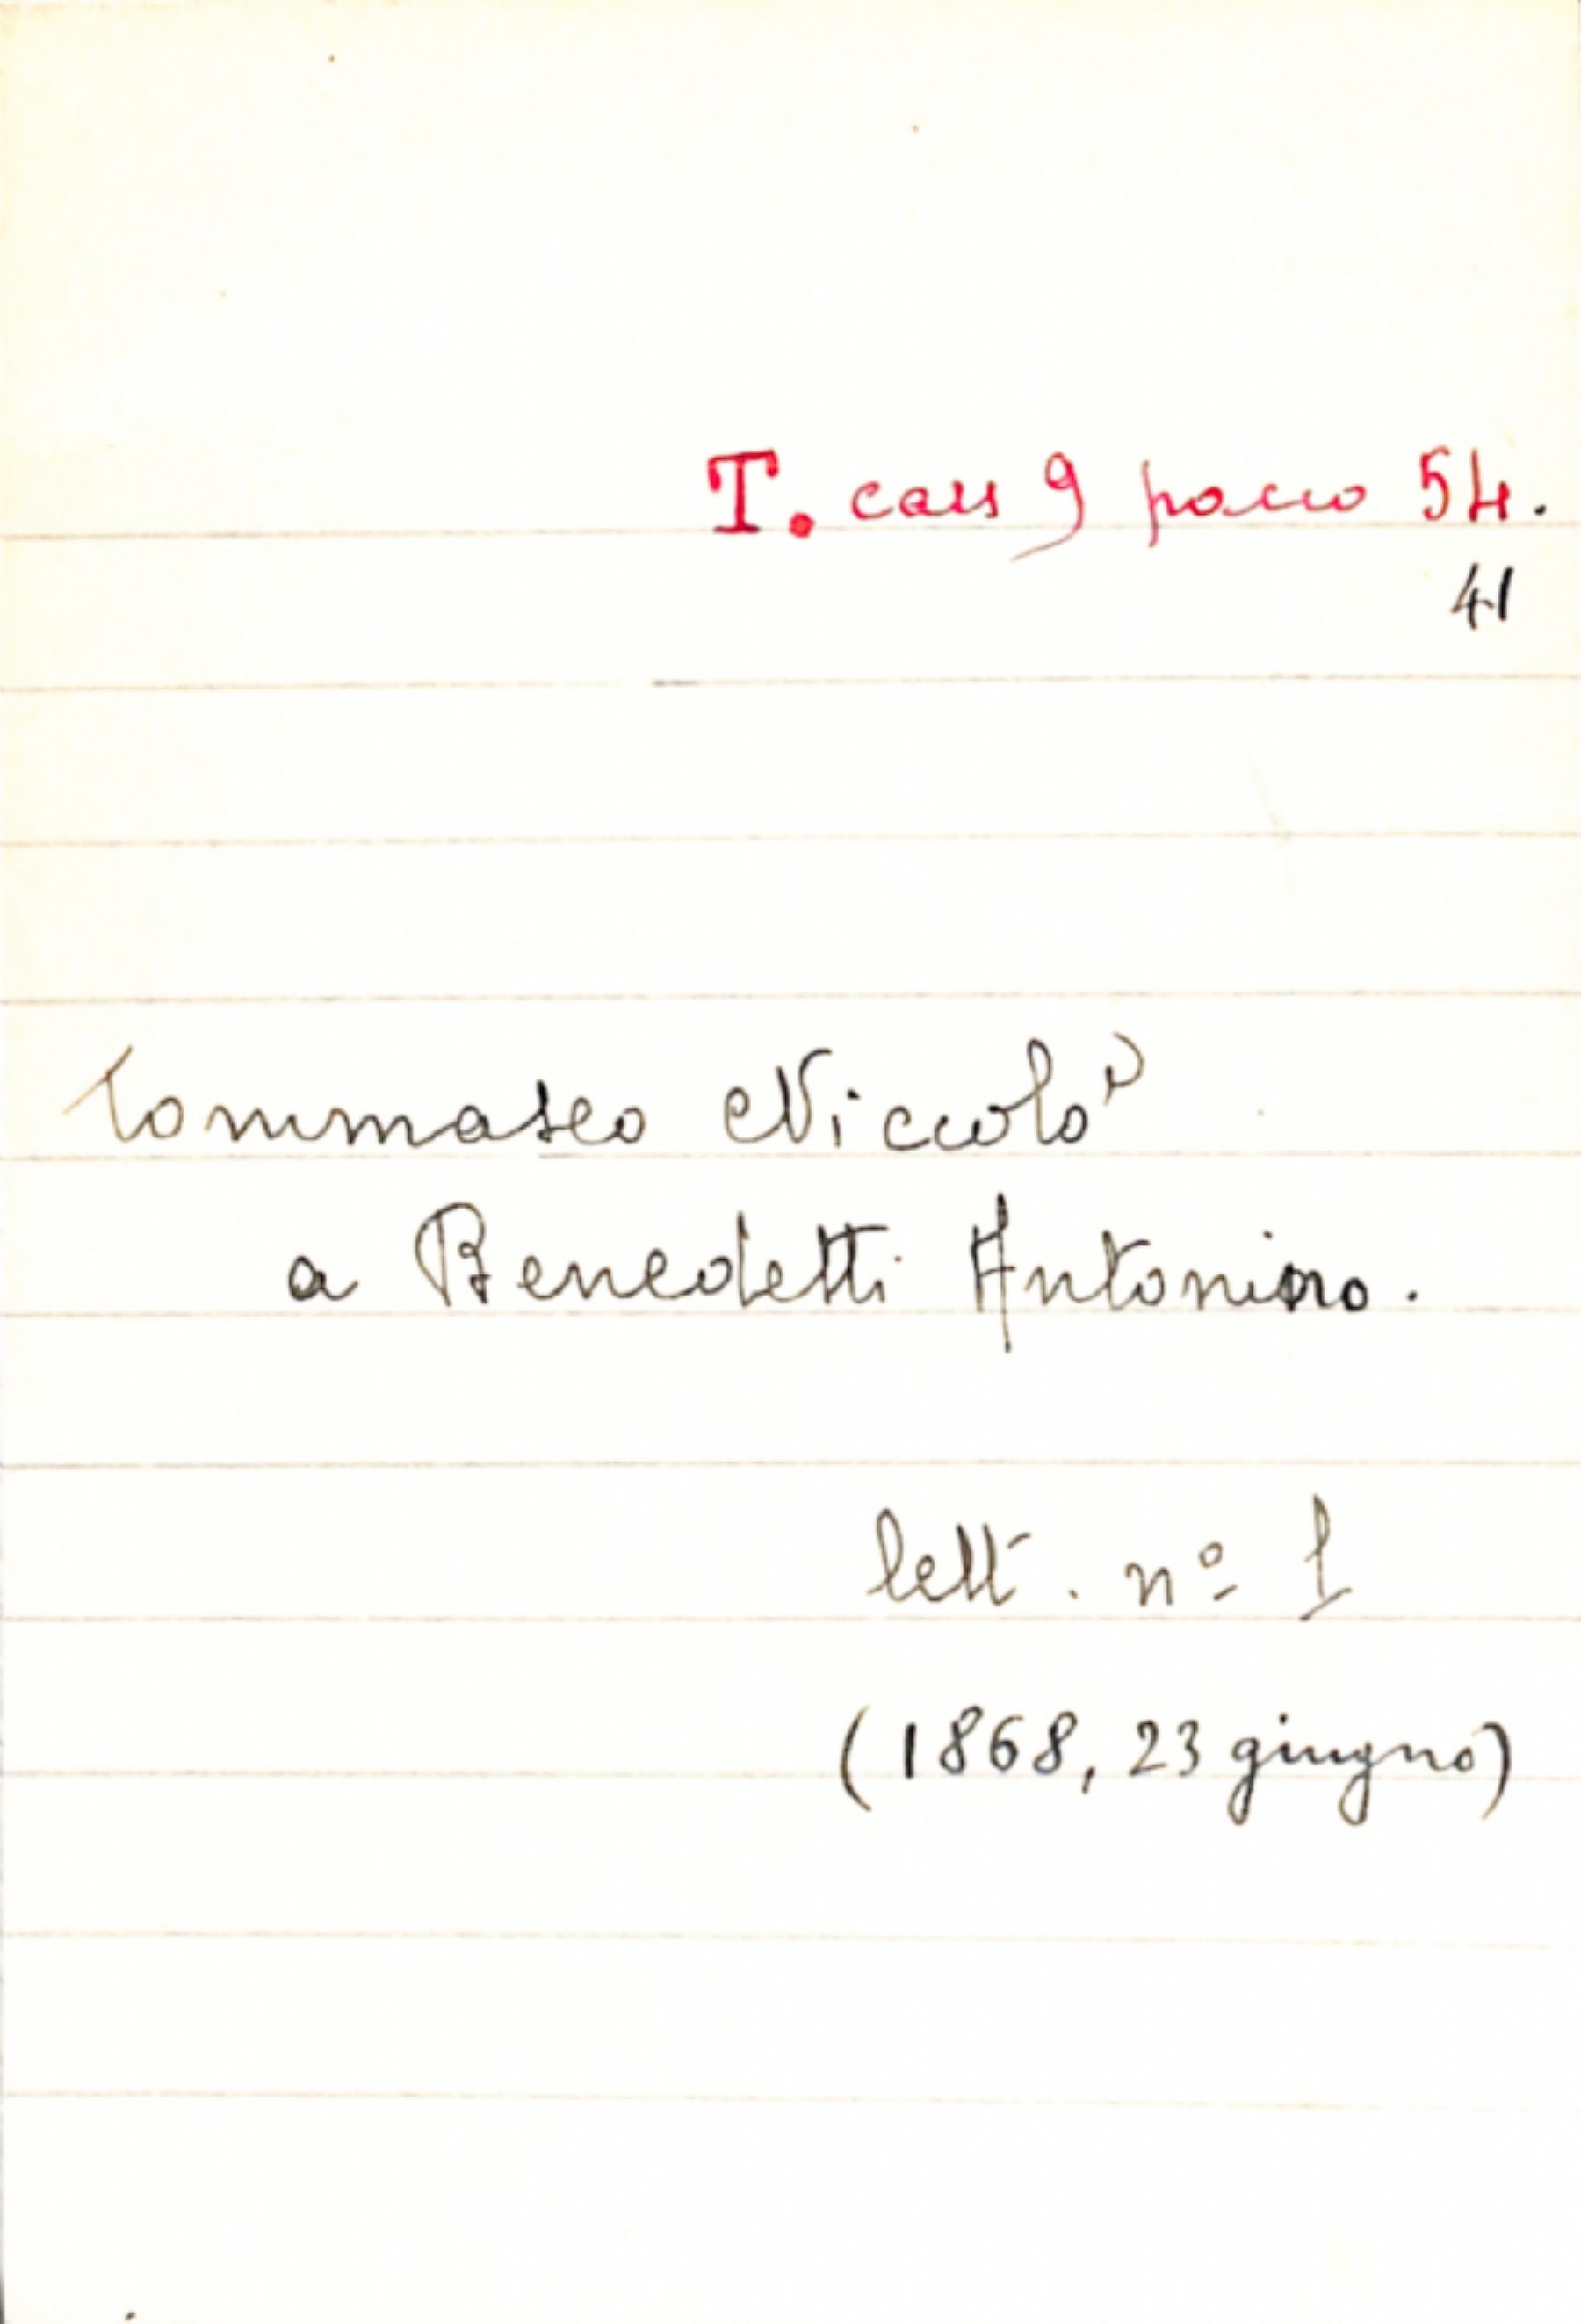 T. cass 9 pacco 54.
41
Tommaseo Niccolò
a Benedetti Antonino.
lett. nº 1
(1868, 23 giugno)